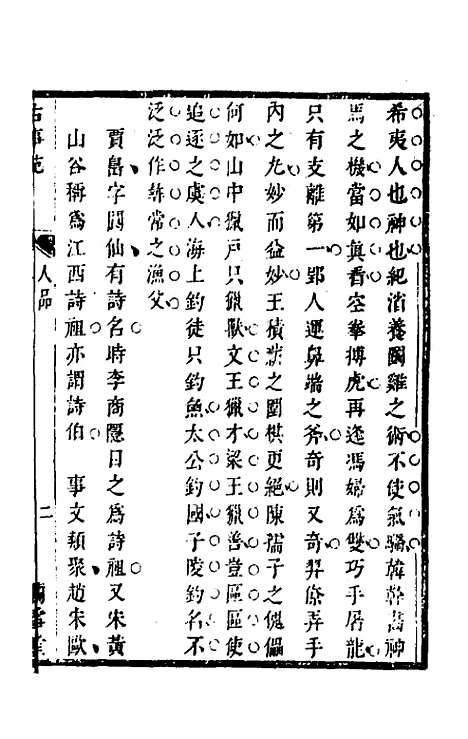 希夷人也神也紀渻養鬪雞之術不使氣驕韓幹畫神
馬之機當如眞看空拳搏虎再逢馮婦爲雙巧手屠龍
只有支離第一郢人運鼻端之斧奇則又奇羿僚弄手
內之丸妙而益妙王積薪之圍棋更絕陳孺子之傀儡
何如山中獵戸只獵獸文王獵才梁王獵善豈區區使
追逐之虞人海上釣徒只釣魚太公釣國子陵釣名不
泛泛作尋常之漁父
賈島字閬仙有詩名時李商隱目之爲詩祖又宋黃
山谷稱爲江西詩祖亦謂詩伯 事文類聚趙朱歐
古事苑
人品
二